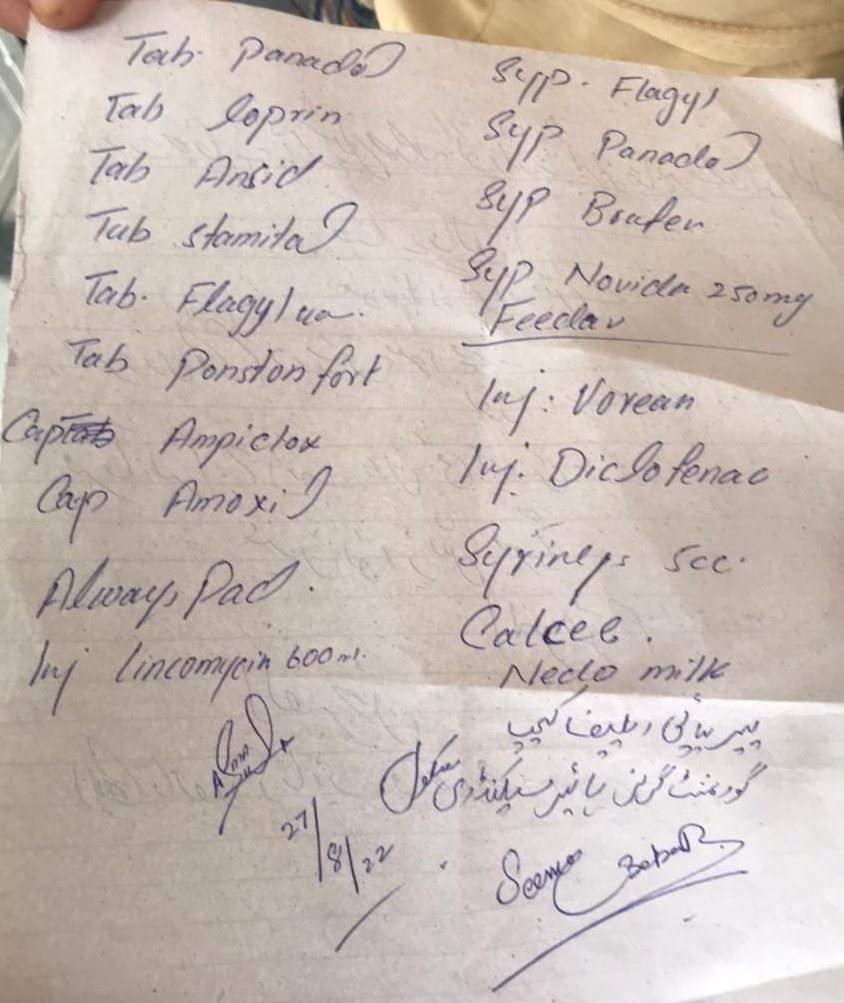 Tab. Panadol
Tab Loprin
Tab Ansid
Tab Stamital
Tab. Flagyl
Tab Ponston fort
Cap Ampiclox
Cap Amoxil
Always Pad.
Inj Lincomycin 600ml.
Syp. Flagyl
Syp Panadol
Syp Brufen
Syp Novida 250mg
Feedar
Inj: Vorean
Inj. Diclofenac
Syringes 5cc.
Calcee.
Nedo milk
ریلیف کیمپ
گورنمنٹ گرلز ہائیر سیکنڈری سکول
27/8/22
Seema